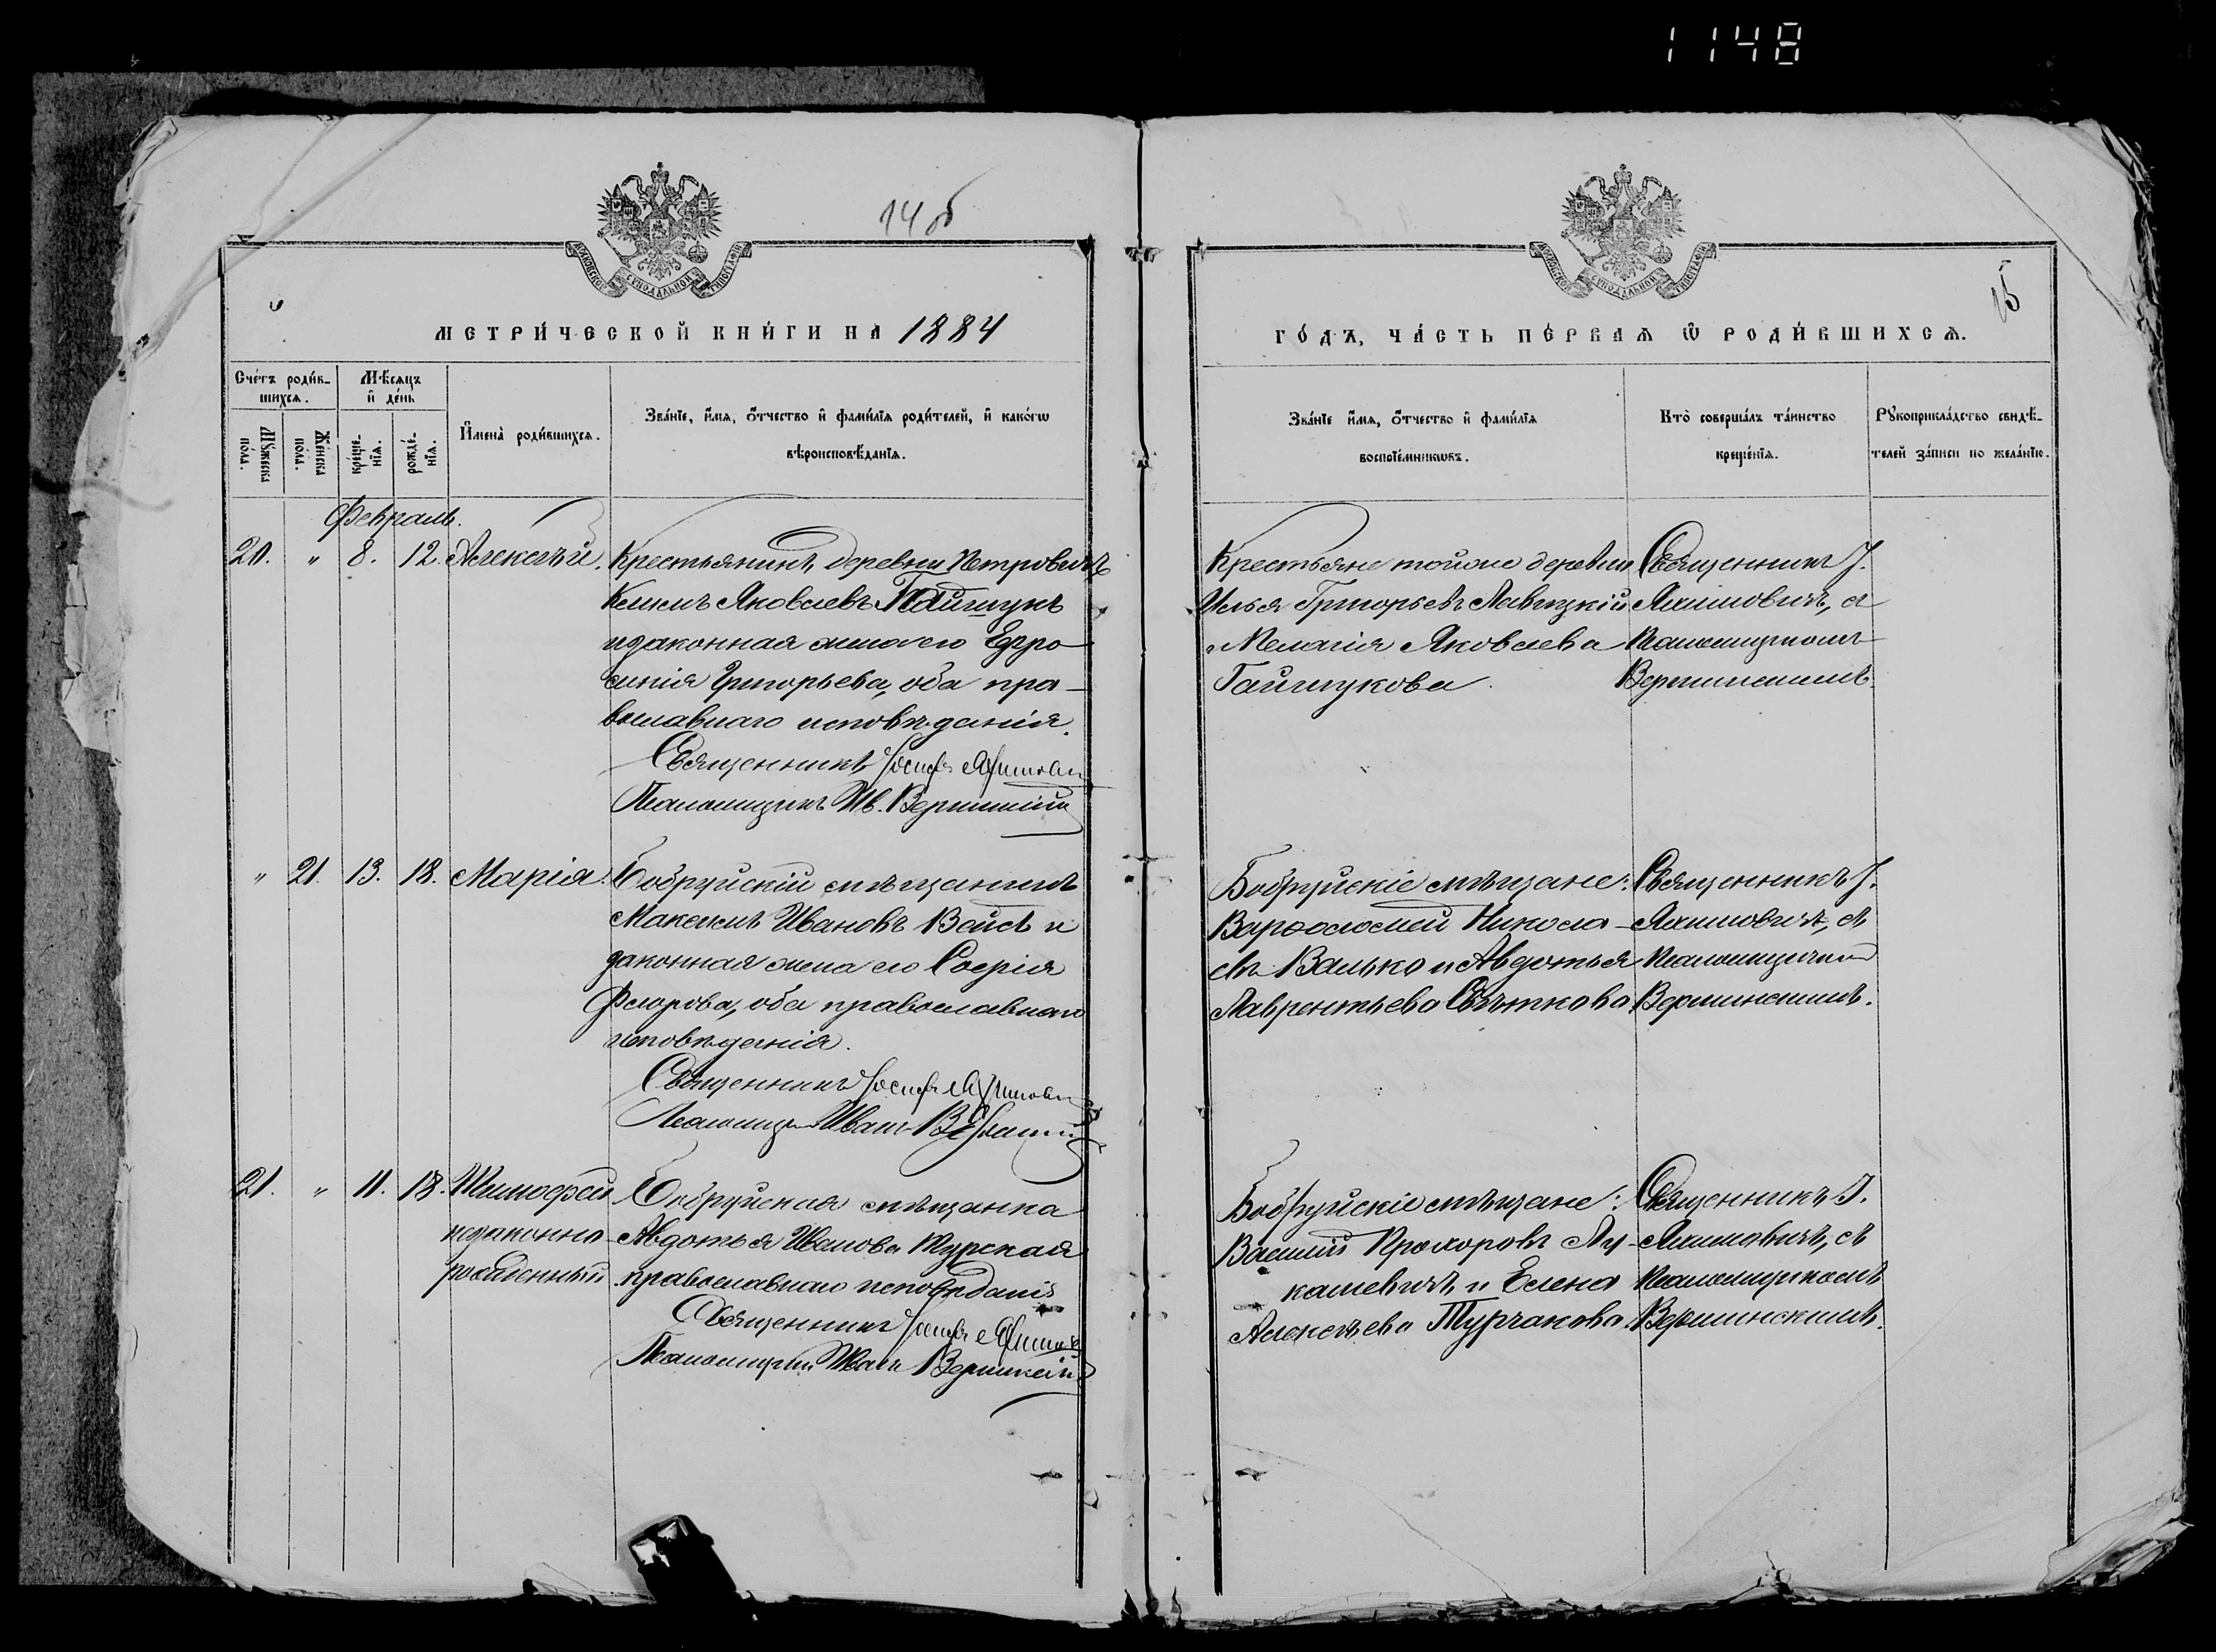 1148
14 об
15
МЕТРИ́ЧЕСКОЙ КНИ́ГИ НА 1884
ГО́ДЪ, ЧА́СТЬ ПЕ́РВАЯ Ѡ РОДИ́ВШИХСЯ.
Сче́тъ роди́в-
шихся.
Му́жеска
пола.
Же́нска
пола.
Мѣ́сяцъ
и де́нь
креще́-
нїя.
рожде́-
нїя.
Имена̀ роди́вшихся.
Зва́нїе, и́мя, о́тчество и фами́лїя роди́телей, и како́гѡ
вѣроисповѣ́данїя.
Зва́нїе и́мя, о́тчество и фами́лїя
воспрїе́мникѡвъ.
Кто̀ соверша́лъ та́инство
креще́нїя.
Рꙋкоприкла́дство свидѣ́-
телей за́писи по жела́нїю.
Февраль.
20. " 8. 12. Алексѣй.
Крестьянинъ деревни Петровичъ
Яковлевъ Гайшукъ
и законная жена его Евфро-
синія Григорьева, оба пра-
вославнаго исповѣданія.
Священникъ Іосифъ Яхимович
Псаломщикъ Ив. Вершинскій
Крестьяне тойже деревни
Илья Григорьевъ Лавицкій
и Пелагія Яковлева
Гайшукова.
Священникъ І.
Яхимовичъ, съ
Псаломщикомъ
Вершинскимъ.
" 21. 13. 18. Марія.
Бобруйскій мѣщанинъ
Максимъ Ивановъ Войсѣ и
законная жена его Софія
Ѳедорова, оба православнаго
исповѣданія.
Священникъ Іосифъ Яхимович
Псаломщ Иванъ Вершинскій
Бобруйскіе мѣщане:
Варѳоломей Никола-
евъ Валько и Авдотья
Лаврентьева Свѣткова
Священникъ І.
Яхимовичъ, съ
Псаломщикомъ
Вершинскимъ.
21. " 11. 18. Тимофей
незаконно-
рожденный
Бобруйская мѣщанка
Авдотья Иванова Турская
православнаго исповѣданія
Священникъ Іосифъ Яхимов
Псаломщикъ Иванъ Вершинскій
Бобруйскіе мѣщане:
Василій Прохоровъ Лу-
кашевичъ и Елена
Алексѣева Турчакова
Священникъ І.
Яхимовичъ, съ
Псаломщикомъ
Вершинскимъ.